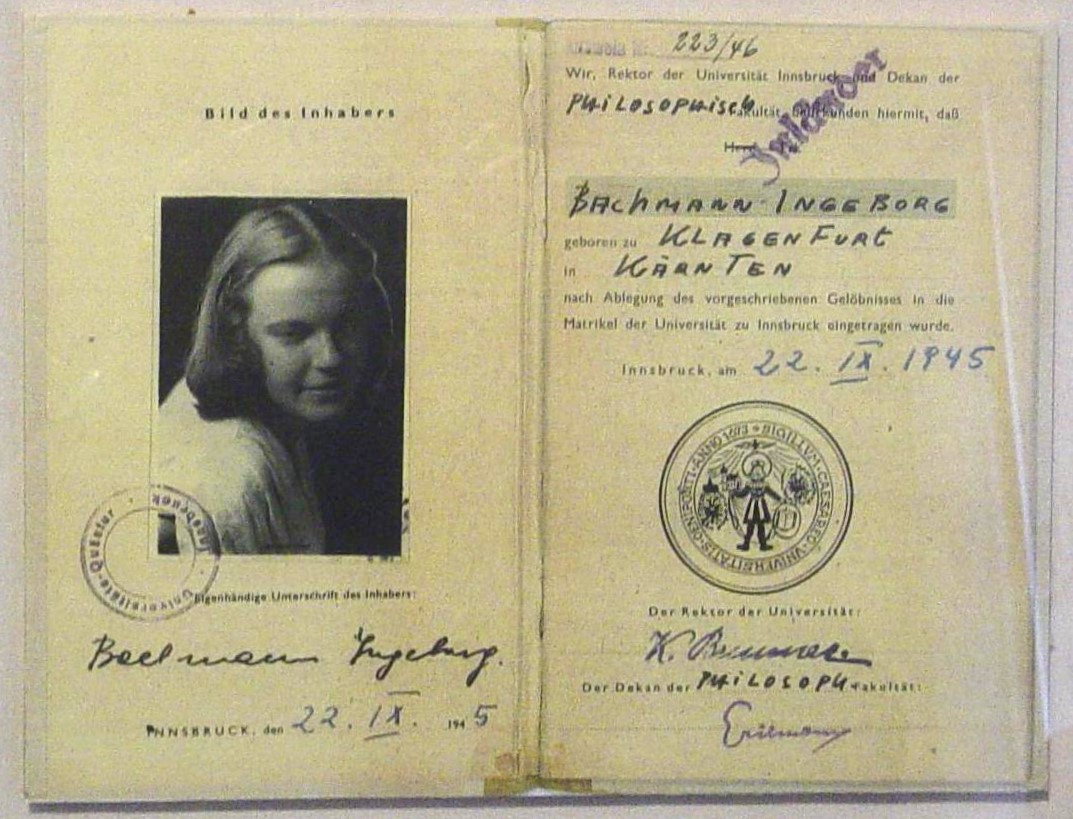 Bild des Inhabers
Universitäts-Quästur · Innsbruck
Eigenhändige Unterschrift des Inhabers:
Bachmann Ingeborg.
INNSBRUCK, den 22. IX. 1945
223/46
Inländer
Wir, Rektor der Universität Innsbruck und Dekan der
PHiLOSOPHisch Fakultät, beurkunden hiermit, daß
Herr
BACHMANN INGEBORG
geboren zu KLAGENFURT
in KÄRNTEN
nach Ablegung des vorgeschriebenen Gelöbnisses in die
Matrikel der Universität zu Innsbruck eingetragen wurde.
Innsbruck, am 22. IX. 1945
SIGILLVM · CAESAREO · VNIVERSITATIS · OENIPONTI · ANNO 1673
Der Rektor der Universität:
K. Brunner
Der Dekan der PHiLOSOPH. Fakultät: